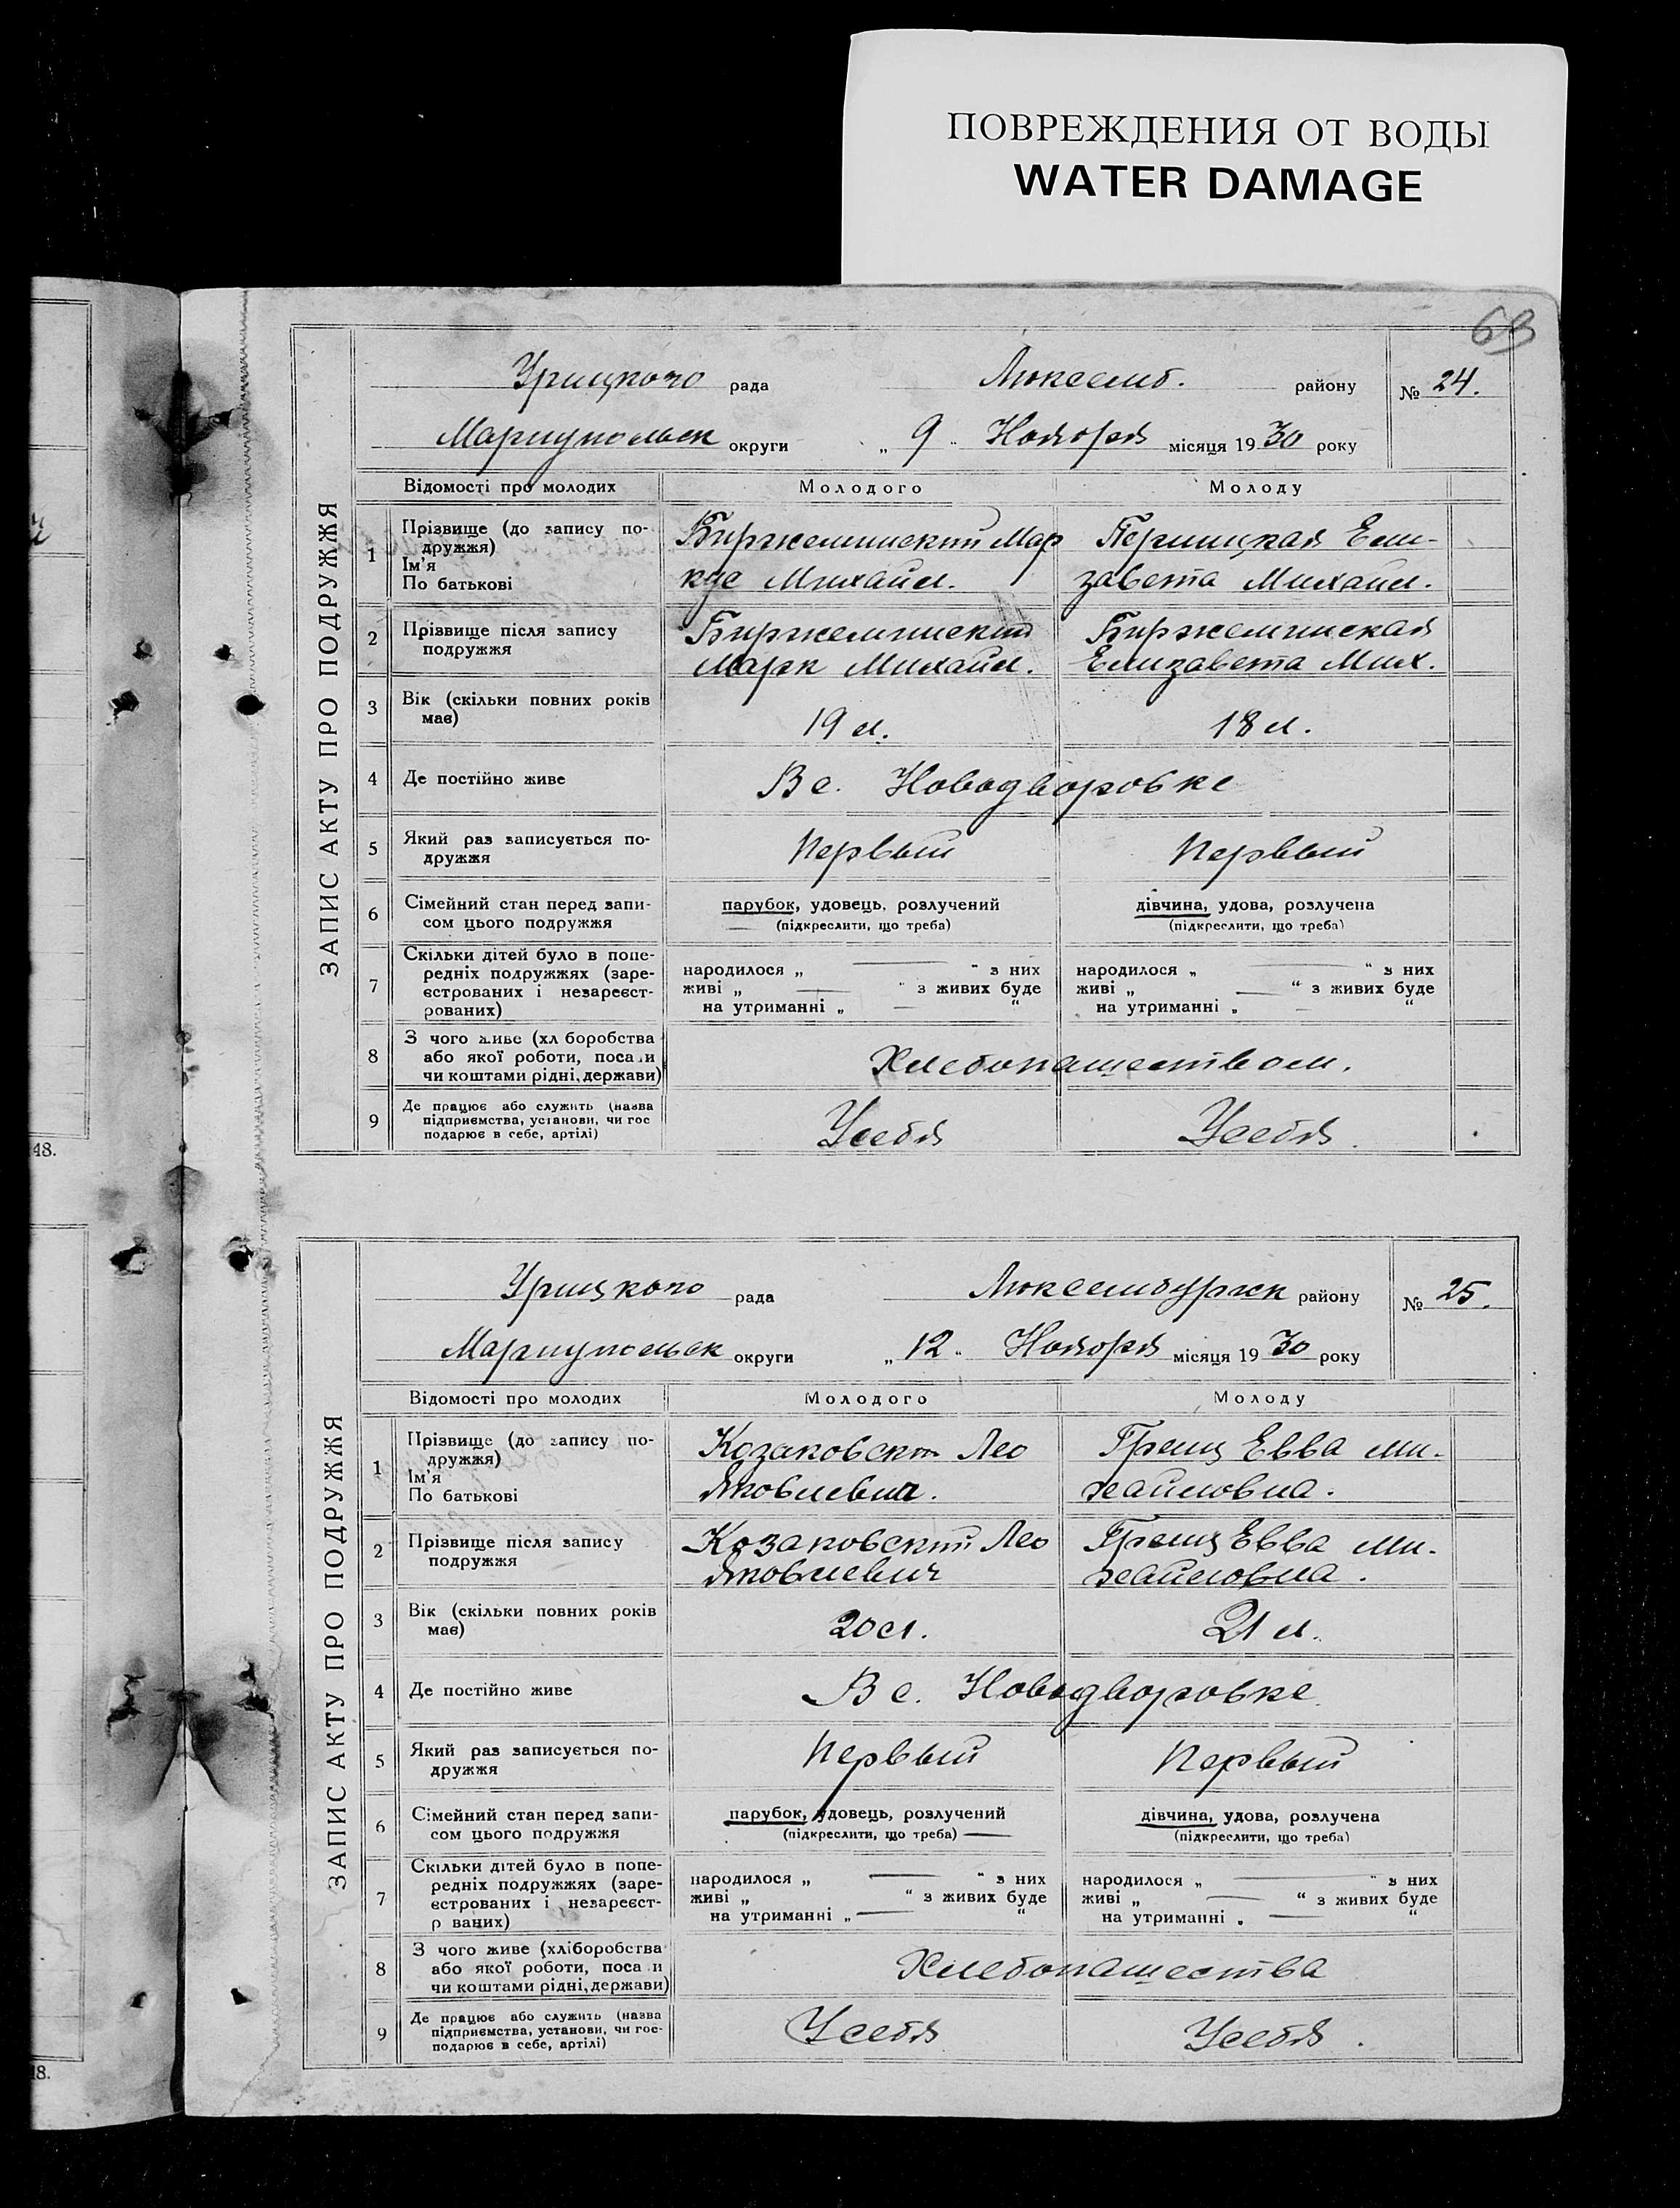 ПОВРЕЖДЕНИЯ ОТ ВОДЫ
WATER DAMAGE
63
ЗАПИС АКТУ ПРО ПОДРУЖЖЯ
Урицкого рада Люксемб. району № 24.
Мариупольск округи „ 9 " Ноября місяця 1930 року
Відомості про молодих Молодого Молоду
1 Прізвище (до запису по-
дружжя)
Ім'я
По батькові
Биржеминский Мар
кус Михайл.
Елизавета Михайл.
2 Прізвище після запису
подружжя
Биржеминский
Марк Михайл.
Биржеминская
Елизавета Мих.
3 Вік (скільки повних років
має)
19 л. 18 л.
4 Де постійно живе В с. Новодворовке
5 Який раз записується по-
дружжя
Первый Первый
6 Сімейний стан перед запи-
сом цього подружжя
парубок, удовець, розлучений
(підкреслити, що треба)
дівчина, удова, розлучена
(підкреслити, що треба)
7 Скільки дітей було в попе-
редніх подружжях (заре-
єстрованих і незареєст-
рованих)
народилося „ — " з них
живі „ — " з живих буде
на утриманні „ — "
народилося „ — " з них
живі „ — " з живих буде
на утриманні „ — "
8 З чого живе (хл боробства
або якої роботи, посади
чи коштами рідні, держави)
Хлебопашеством.
9 Де працює або служить (назва
підприємства, установи, чи гос
подарює в себе, артілі)
У себя У себя.
48.
ЗАПИС АКТУ ПРО ПОДРУЖЖЯ
Урицкого рада Люксембуржск району № 25.
Мариупольск округи „ 12 " Ноября місяця 1930 року
Відомості про молодих Молодого Молоду
1 Прізвище (до запису по-
дружжя)
Ім'я
По батькові
Козаковский Лео
Яковлевич.
Гренц Евва Ми-
хайловна.
2 Прізвище після запису
подружжя
Козаковский Лео
Яковлевич
Гренц Евва Ми-
хайловна.
3 Вік (скільки повних років
має)
20 л. 21 л.
4 Де постійно живе В с. Новодворовке
5 Який раз записується по-
дружжя
Первый Первый
6 Сімейний стан перед запи-
сом цього подружжя
парубок, удовець, розлучений
(підкреслити, що треба) —
дівчина, удова, розлучена
(підкреслити, що треба)
7 Скільки дітей було в попе-
редніх подружжях (заре-
єстрованих і незареєст-
р ваних)
народилося „ — " з них
живі „ — " з живих буде
на утриманні „ — "
народилося „ — " з них
живі „ — " з живих буде
на утриманні „ — "
8 З чого живе (хліборобства
або якої роботи, поса и
чи коштами рідні, держави)
Хлебопашества
9 Де працює або служить (назва
підприємства, установи, чи гос-
подарює в себе, артілі)
У себя У себя.
48.